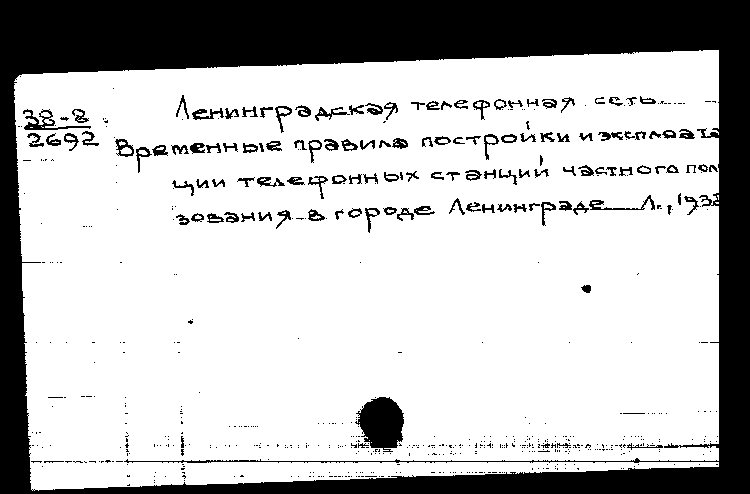 38-8
2692
Ленинградская телефонная сеть.
Временные правила постройки и эксплоата
ции телефонных станций частного пол
зования в городе Ленинграде Л., 1938